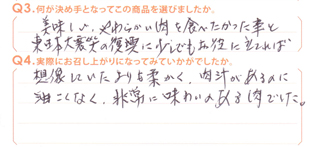 Q3.何が決め手となってこの商品を選びましたか。
美味しい、やわらかい肉を食べたかった事と
東日本大震災の復興に少しでもお役に立てれば
Q4.実際にお召し上がりになってみていかがでしたか。
想像していたよりも柔かく、肉汁があるのに
油こくなく、非常に味わいのある肉でした。